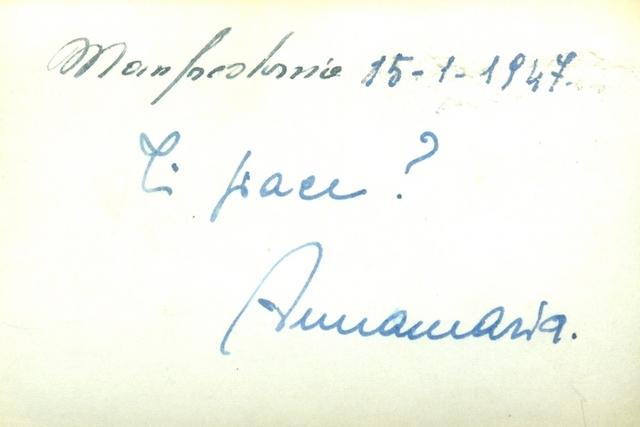 Manfredonia 15-1-1947.
Ti piace?
Annamaria.